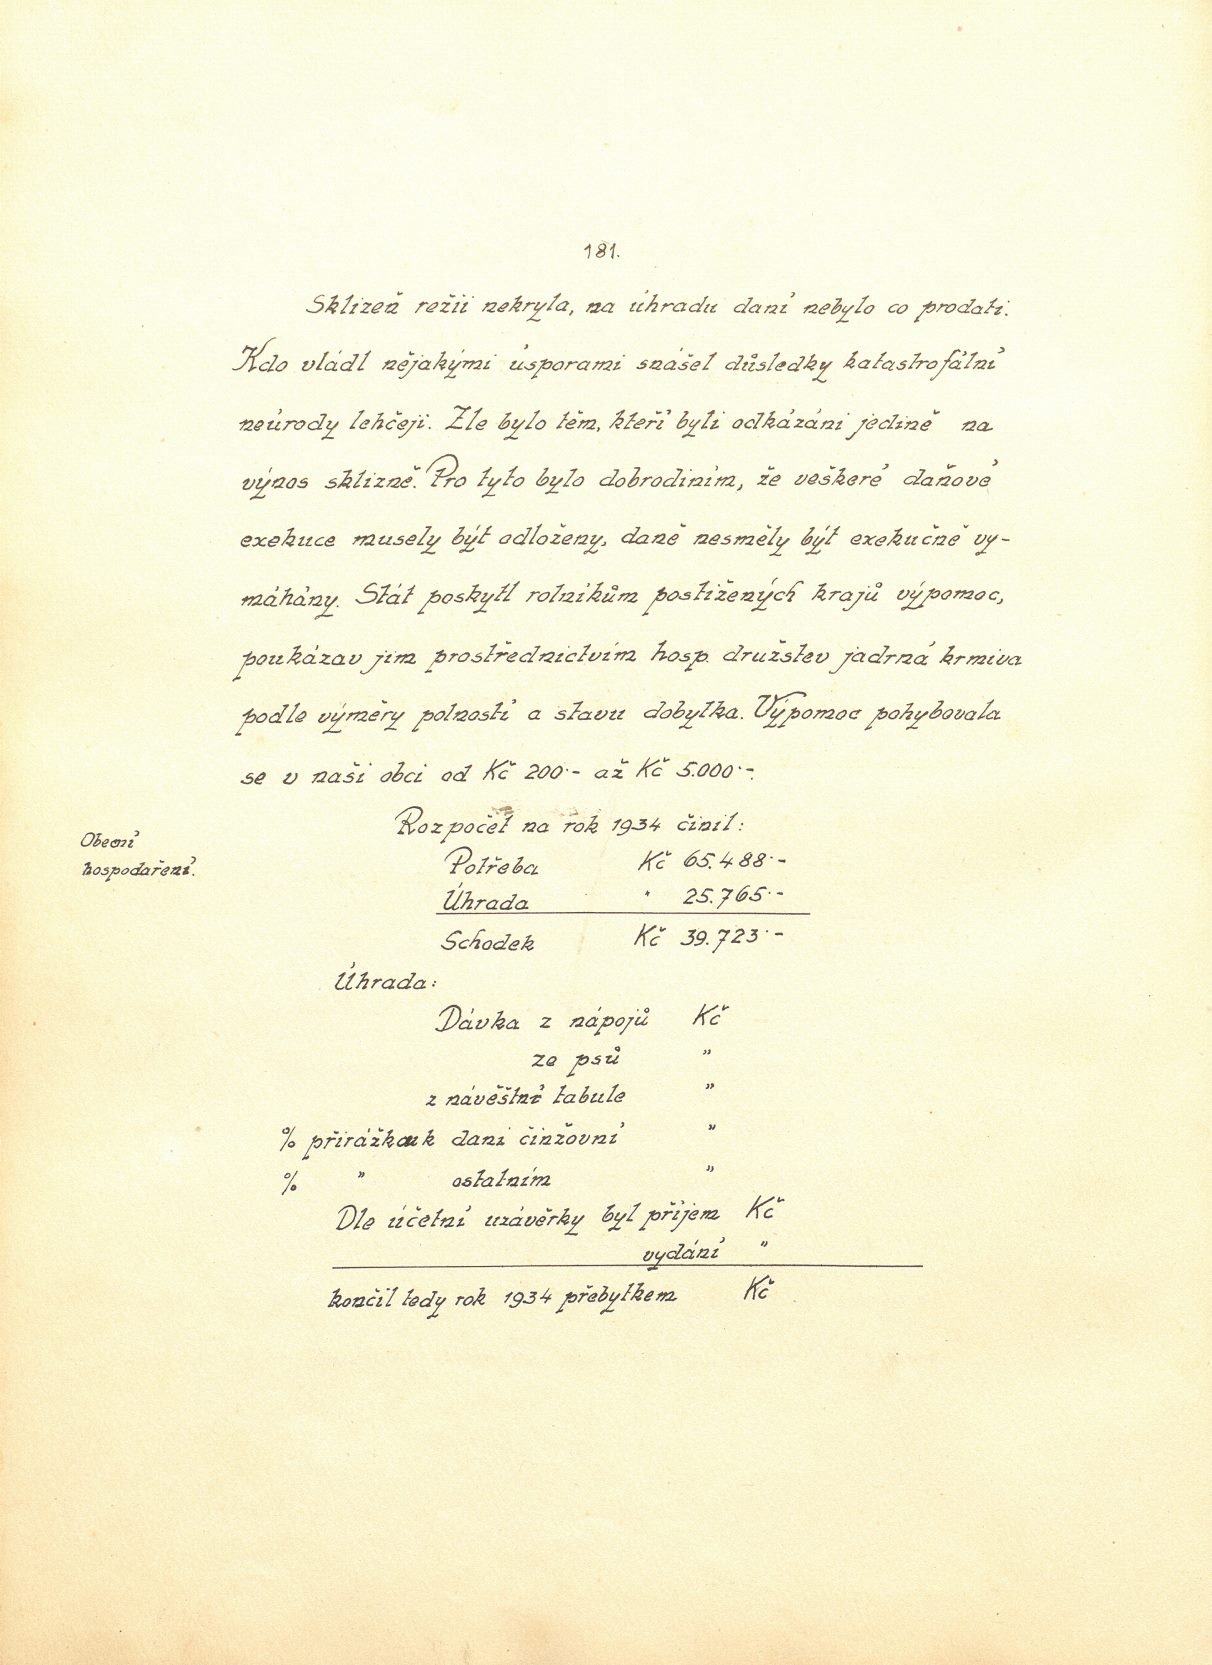 181.
Sklizeň režii nekryla, na úhradu daní nebylo co prodati.
Kdo vládl nějakými úsporami snášel důsledky katastrofální
neúrody lehčeji. Zle bylo těm, kteří byli odkázáni jedině na
výnos sklizně. Pro tyto bylo dobrodiním, že veškeré daňové
exekuce musely být odloženy, daně nesměly být exekučně vy-
máhány. Stát poskytl rolníkům postižených krajů výpomoc,
poukázav jim prostřednictvím hosp. družstev jadrná krmiva
podle výměry polností a stavu dobytka. Výpomoc pohybovala
se v naši obci od Kč 200·- až Kč 5.000·-.
Obecní
hospodaření.
Rozpočet na rok 1934 činil:
Potřeba Kč 65.488·-
Úhrada " 25.765·-
Schodek Kč 39.723·-
Úhrada:
Dávka z nápojů Kč
ze psů "
z návěštní tabule "
% přirážka k dani činžovní "
% " ostatním "
Dle účetní uzávěrky byl příjem Kč
vydání "
končil tedy rok 1934 přebytkem Kč